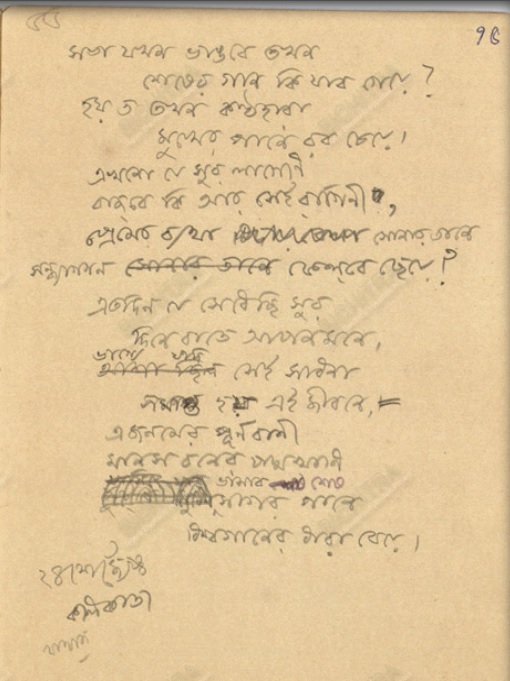 ৭৫
সভা যখন ভাঙবে তখন
শেষের গান কি যাব গেয়ে?
হয় ত তখন কণ্ঠহারা
মুখের পানে রব চেয়ে।
এখনো যে সুর লাগেনি
বাজবে কি আর সেই রাগিণী,
প্রেমের ব্যথা সোনার তানে
সন্ধ্যাগগন ফেলবে ছেয়ে?
এতদিন যে সেধেছি সুর
দিনে রাতে আপন মনে,
ভাগ্যে যদি সেই সাধনা
সমাপ্ত হয় এই জীবনে,
এ জনমের পূর্ণ বাণী
মানস বনের পদ্মখানি
ভাসাব শেষ
সাগর পানে
বিশ্বগানের ধারা বেয়ে।
২৪শে জ্যৈষ্ঠ
কলিকাতা